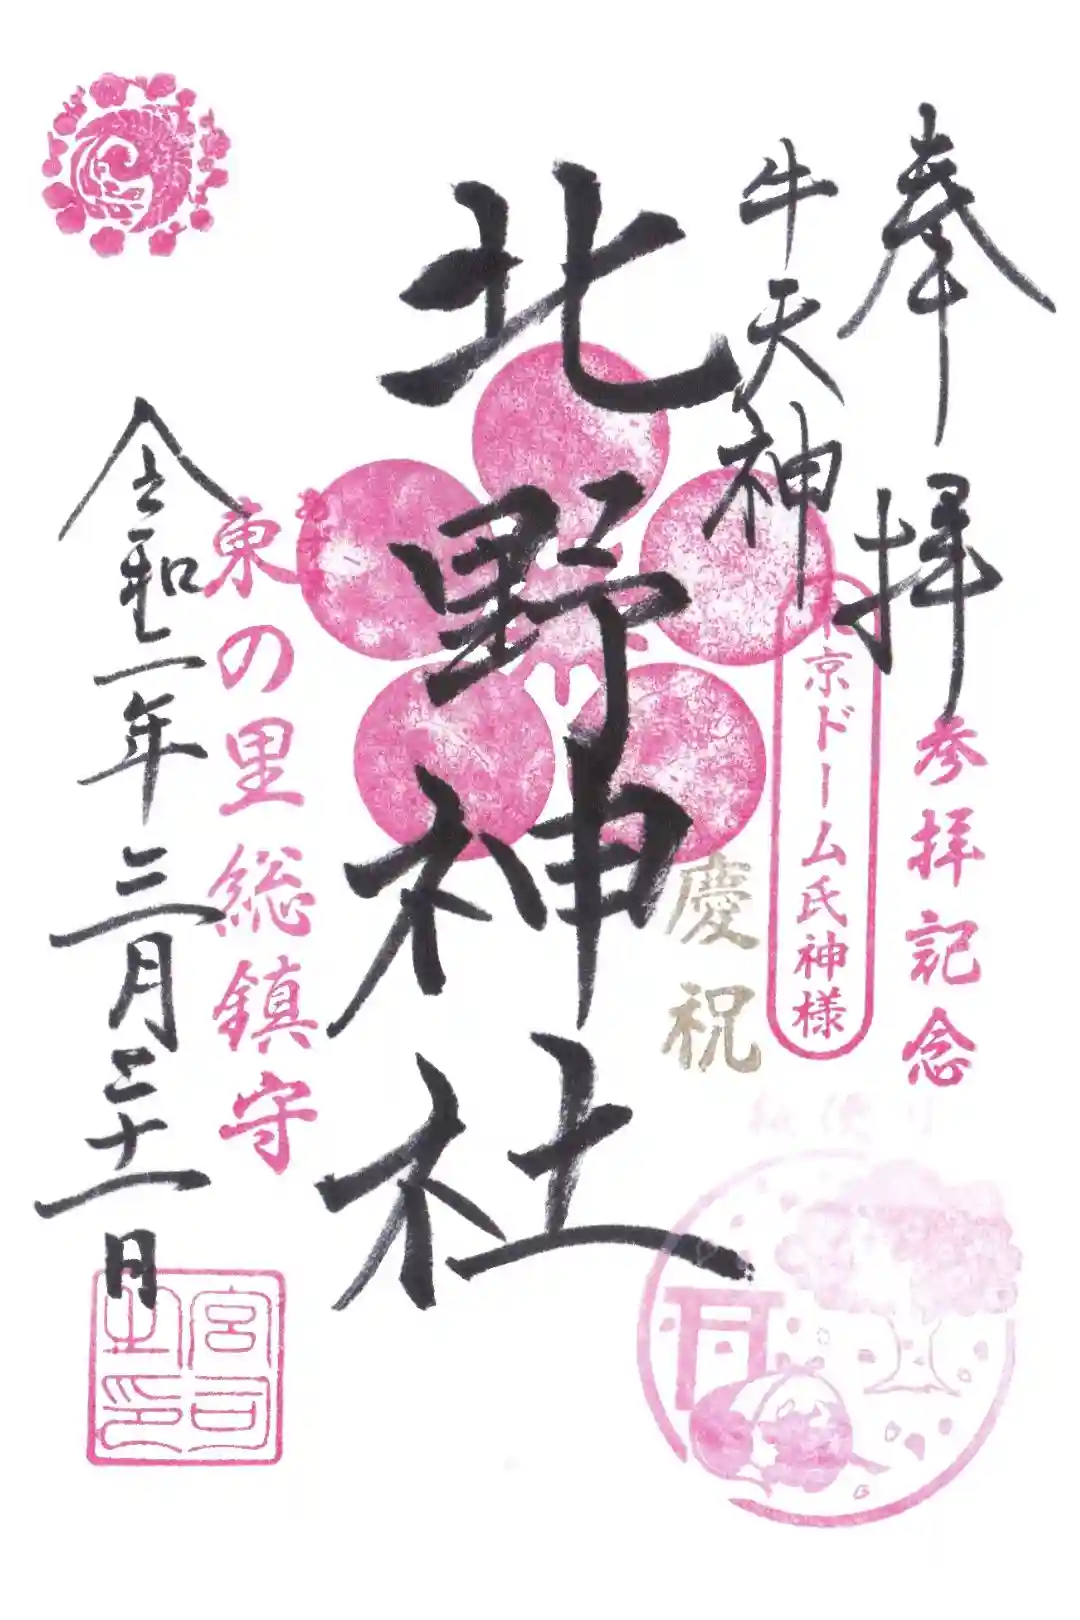 奉拝
参拝記念
牛天神
京ドーム氏神様
慶祝
北野神社
東の里総鎮守
令和二年三月二十一日
宮司之印